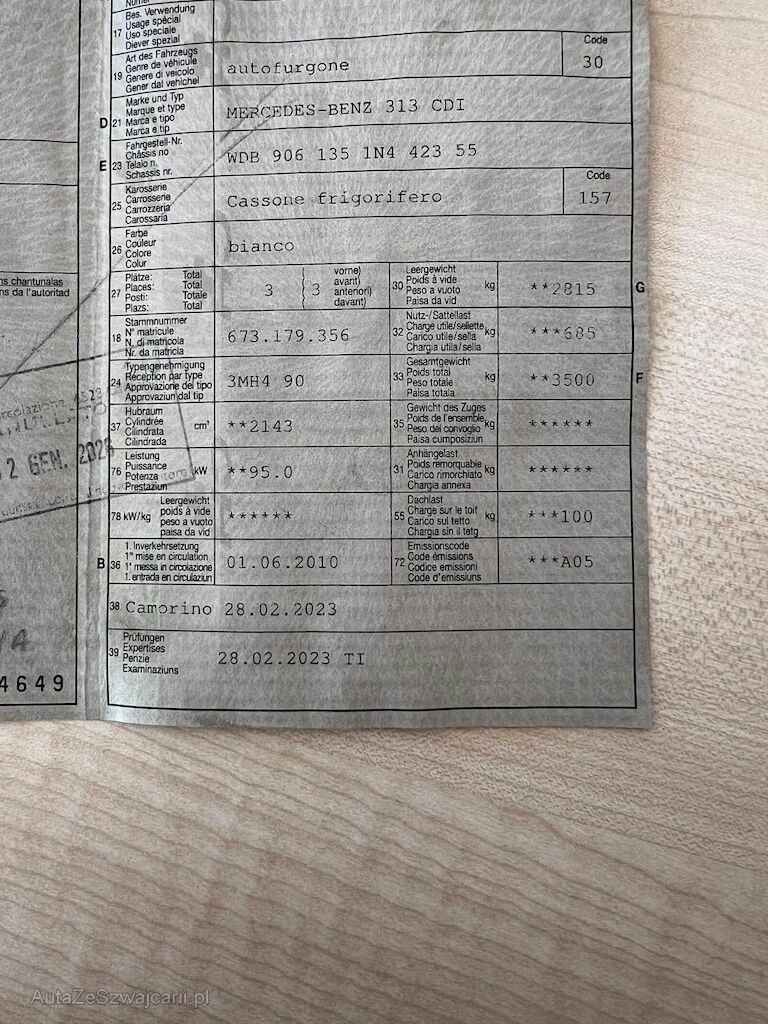 Bes. Verwendung
Usage spécial
17 Uso speciale
Diever spezial
Art des Fahrzeugs
Genre de véhicule
19 Genere di veicolo
Gener dal vehichel
autofurgone
Code
30
Marke und Typ
Marque et type
D 21 Marca e tipo
Marca e tip
MERCEDES-BENZ 313 CDI
Fahrgestell-Nr.
Châssis no
E 23 Telaio n.
Schassis nr.
WDB 906 135 1N4 423 55
Karosserie
25 Carrosserie
Carrozzeria
Carossaria
Cassone frigorifero
Code
157
Farbe
26 Couleur
Colore
Colur
bianco
ns chantunalas
ns da l'autoritad
Plätze: Total
27 Places: Total
Posti: Totale
Plazs: Total
3
3
vorne)
avant)
anteriori)
davant)
Leergewicht
30 Poids à vide kg
Peso a vuoto
Paisa da vid
**2815
G
Stammnummer
18 N° matricule
N. di matricola
Nr. da matricla
673.179.356
Nutz-/Sattellast
32 Charge utile/sellette kg
Carico utile/sella
Chargia utila/sella
***685
Typengenehmigung
24 Réception par type
Approvazione del tipo
Approvaziun dal tip
3MH4 90
Gesamtgewicht
33 Poids total kg
Peso totale
Paisa totala
**3500
F
Hubraum
37 Cylindrée cm³
Cilindrata
Cilindrada
**2143
Gewicht des Zuges
35 Poids de l'ensemble kg
Peso del convoglio
Paisa cumposiziun
******
2 GEN. 2026
Leistung
76 Puissance kW
Potenza
Prestaziun
**95.0
Anhängelast
31 Poids remorquable kg
Carico rimorchiato
Chargia annexa
******
Leergewicht
78 kW/kg poids à vide
peso a vuoto
paisa da vid
******
Dachlast
55 Charge sur le toit kg
Carico sul tetto
Chargia sin il tetg
***100
1. Inverkehrsetzung
B 36 1re mise en circulation
1a messa in circolazione
1. entrada en circulaziun
01.06.2010
Emissionscode
72 Code émissions
Codice emissioni
Code d'emissiuns
***A05
38 Camorino 28.02.2023
Prüfungen
39 Expertises
Perizie
Examinaziuns
28.02.2023 TI
4649
AutaZeSzwajcarii.pl